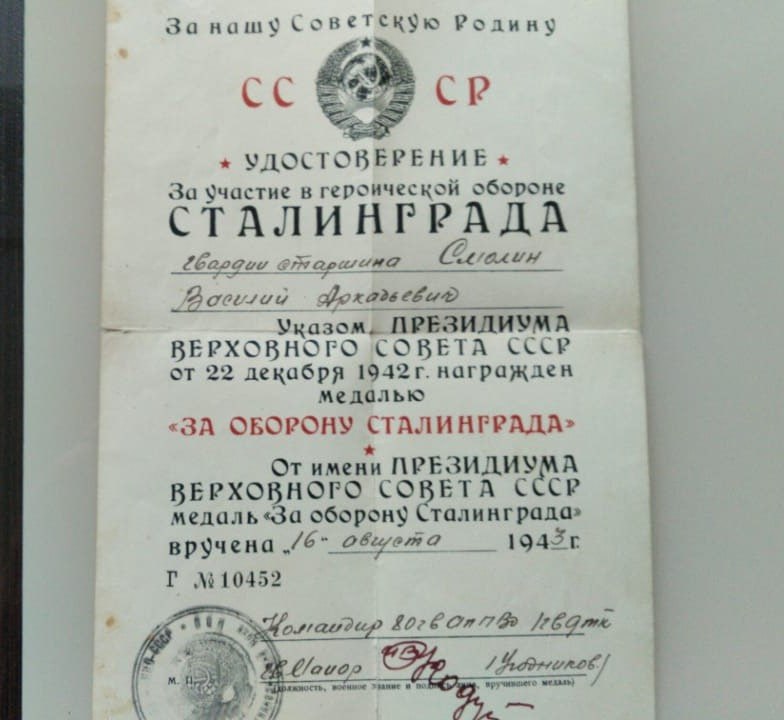 За нашу Советскую Родину
СС СР
★ УДОСТОВЕРЕНИЕ ★
За участие в героической обороне
СТАЛИНГРАДА
гвардии старшина Смолин
Василий Аркадьевич
Указом ПРЕЗИДИУМА
ВЕРХОВНОГО СОВЕТА СССР
от 22 декабря 1942 г. награжден
медалью
«ЗА ОБОРОНУ СТАЛИНГРАДА»
★
От имени ПРЕЗИДИУМА
ВЕРХОВНОГО СОВЕТА СССР
медаль «За оборону Сталинграда»
вручена „16“ августа 1943 г.
Г № 10452
Командир
М. П. Майор /Угодников/
(должность, военное звание и подпись лица, вручившего медаль)